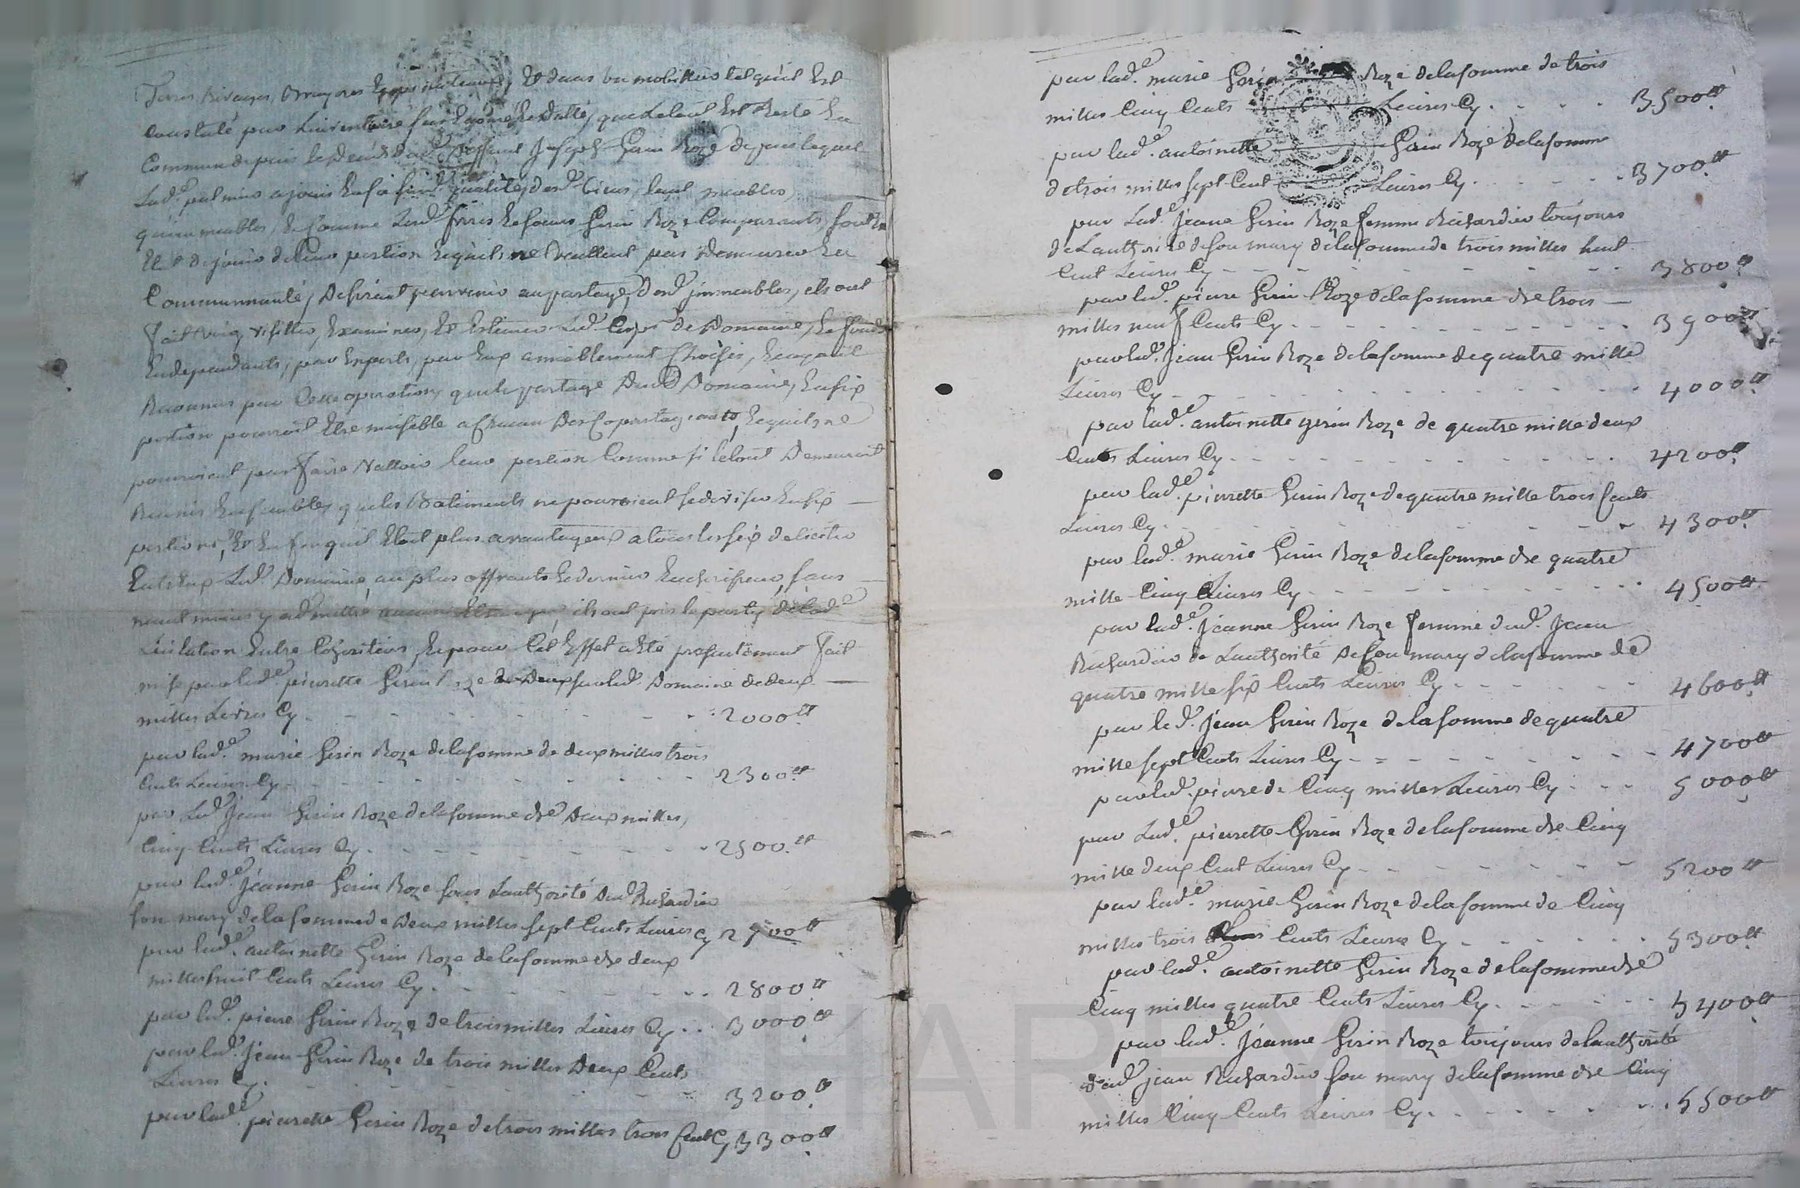 constaté par Linventaire
commun depuis le Joseph Gerin Roze depuis lequel
immeubles, et comme Lesd. freres et soeurs Gerin Roze Comparants
de jouir de leur portion et quils ne veullent pas demeurer en
Communauté, desirant parvenir au partage desd. immeubles, ils ont
fait visitter, examiner, et estimer Led. Corps de Domaine,
par Experts, par Eux amiablement choisis,
Reconnu par cette operation, que le partage dud. Domaine, en six
portion pourroit etre nuisible a chacun des Copartageants, et quils ne
pourroient pas faire valloir leur portion comme si le tout demeuroit
Reunis Ensembles, que les Batiments ne pourroient se diviser en six
portions, et enfin quil etoit plus avantageux a tous les six de liciter
Entreux Led. Domaine, au plus offrant et dernier encherisseur, sans
ils ont pris le party de lad.e
Licitation Entre Cohéritiers, et pour cet Effet a eté presentement fait
mise par lad.e pierrette Gerin Roze Domaine de deux
milles Livres Cy 2000 tt
par lad.e marie Gerin Roze de la somme de deux milles trois
Cents Livres Cy 2300 tt
par Led. Jean Gerin Roze de la somme de deux milles,
Cinq Cents Livres Cy 2500 tt
par lad.e Jeanne Gerin Roze sous Lauthorité dud. Richardier
son mary de la somme de deux milles sept Cents Livres Cy 2700 tt
par lad.e antoinette Gerin Roze de la somme de deux
milles huit Cents Livres Cy 2800 tt
par led. pierre Gerin Roze de trois milles Livres Cy 3000 tt
par led. Jean Gerin Roze de trois milles deux Cents
Livres Cy 3200 tt
par lad.e pierrette Gerin Roze de trois milles trois Cents Cy 3300 tt
par lad.e marie Gerin Roze de la somme de trois
milles Cinq Cents Livres Cy 3500 tt
par lad.e antoinette Gerin Roze de la somme
de trois milles sept Cent Livres Cy 3700 tt
par Lad.e Jeane Gerin Roze femme Richardier toujours
de Lauthorité de son mary de la somme de trois milles huit
Cent Livres Cy 3800 tt
par led. pierre Gerin Roze de la somme de trois
milles neuf Cents Cy 3900 tt
par led. Jean Gerin Roze de la somme de quatre mille
Livres Cy 4000 tt
par lad.e antoinette gerin Roze de quatre mille deux
Cents Livres Cy 4200 tt
par lad.e pierrette Gerin Roze de quatre mille trois Cents
Livres Cy 4300 tt
par lad.e marie Gerin Roze de la somme de quatre
mille Cinq Livres Cy 4500 tt
par lad.e Jeanne Gerin Roze femme dud. Jean
Richardier de Lauthorité de son mary de la somme de
quatre mille six Cents Livres Cy 4600 tt
par led. Jean Gerin Roze de la somme de quatre
mille sept Cents Livres Cy 4700 tt
par led. pierre de Cinq milles Livres Cy 5000 tt
par Lad.e pierrette Gerin Roze de la somme de Cinq
mille deux Cent Livres Cy 5200 tt
par lad.e marie Gerin Roze de la somme de Cinq
milles trois Cents Livres Cy 5300 tt
par lad.e antoinette Gerin Roze de la somme de
Cinq milles quatre Cents Livres Cy 5400 tt
par lad.e Jeanne Gerin Roze toujours de lauthorité
dud. jean Richardier son mary de la somme de Cinq
milles Cinq Cents Livres Cy 5500 tt